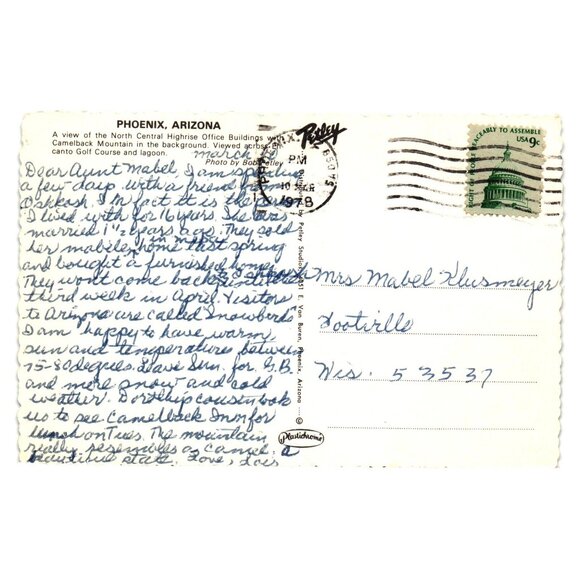 PHOENIX, ARIZONA
A view of the North Central Highrise Office Buildings with
Camelback Mountain in the background. Viewed across En-
canto Golf Course and lagoon.
Photo by Bob Petley
March
Dear Aunt Mabel, I am spending
a few days with a friend from
Oshkosh. In fact it is the person
I lived with for 16 years. She was
married 1½ years ago. They sold
her mobile home that spring
and bought a furnished home
in Mesa
They wont come back until the
to Oshkosh
third week in April. Visitors
to Arizona are called Snowbirds
I am happy to have warm
sun and temperatures between
75-80 degrees. Leave Sun. for G.B.
and more snow and cold
weather. Dorothy's cousin took
us to see Camelback Inn for
lunch on Tues. The mountain
really resembles a camel. a
beautiful state. Love, Lois
PHOENIX
PM
10 MAR
1978
Petley
by Petley Studios, 4051 E. Van Buren, Phoenix, Arizona ©
Plastichrome
85075
PEACEABLY TO ASSEMBLE
USA 9c
Mrs Mabel Klusmeyer
Footville
Wis. 53537